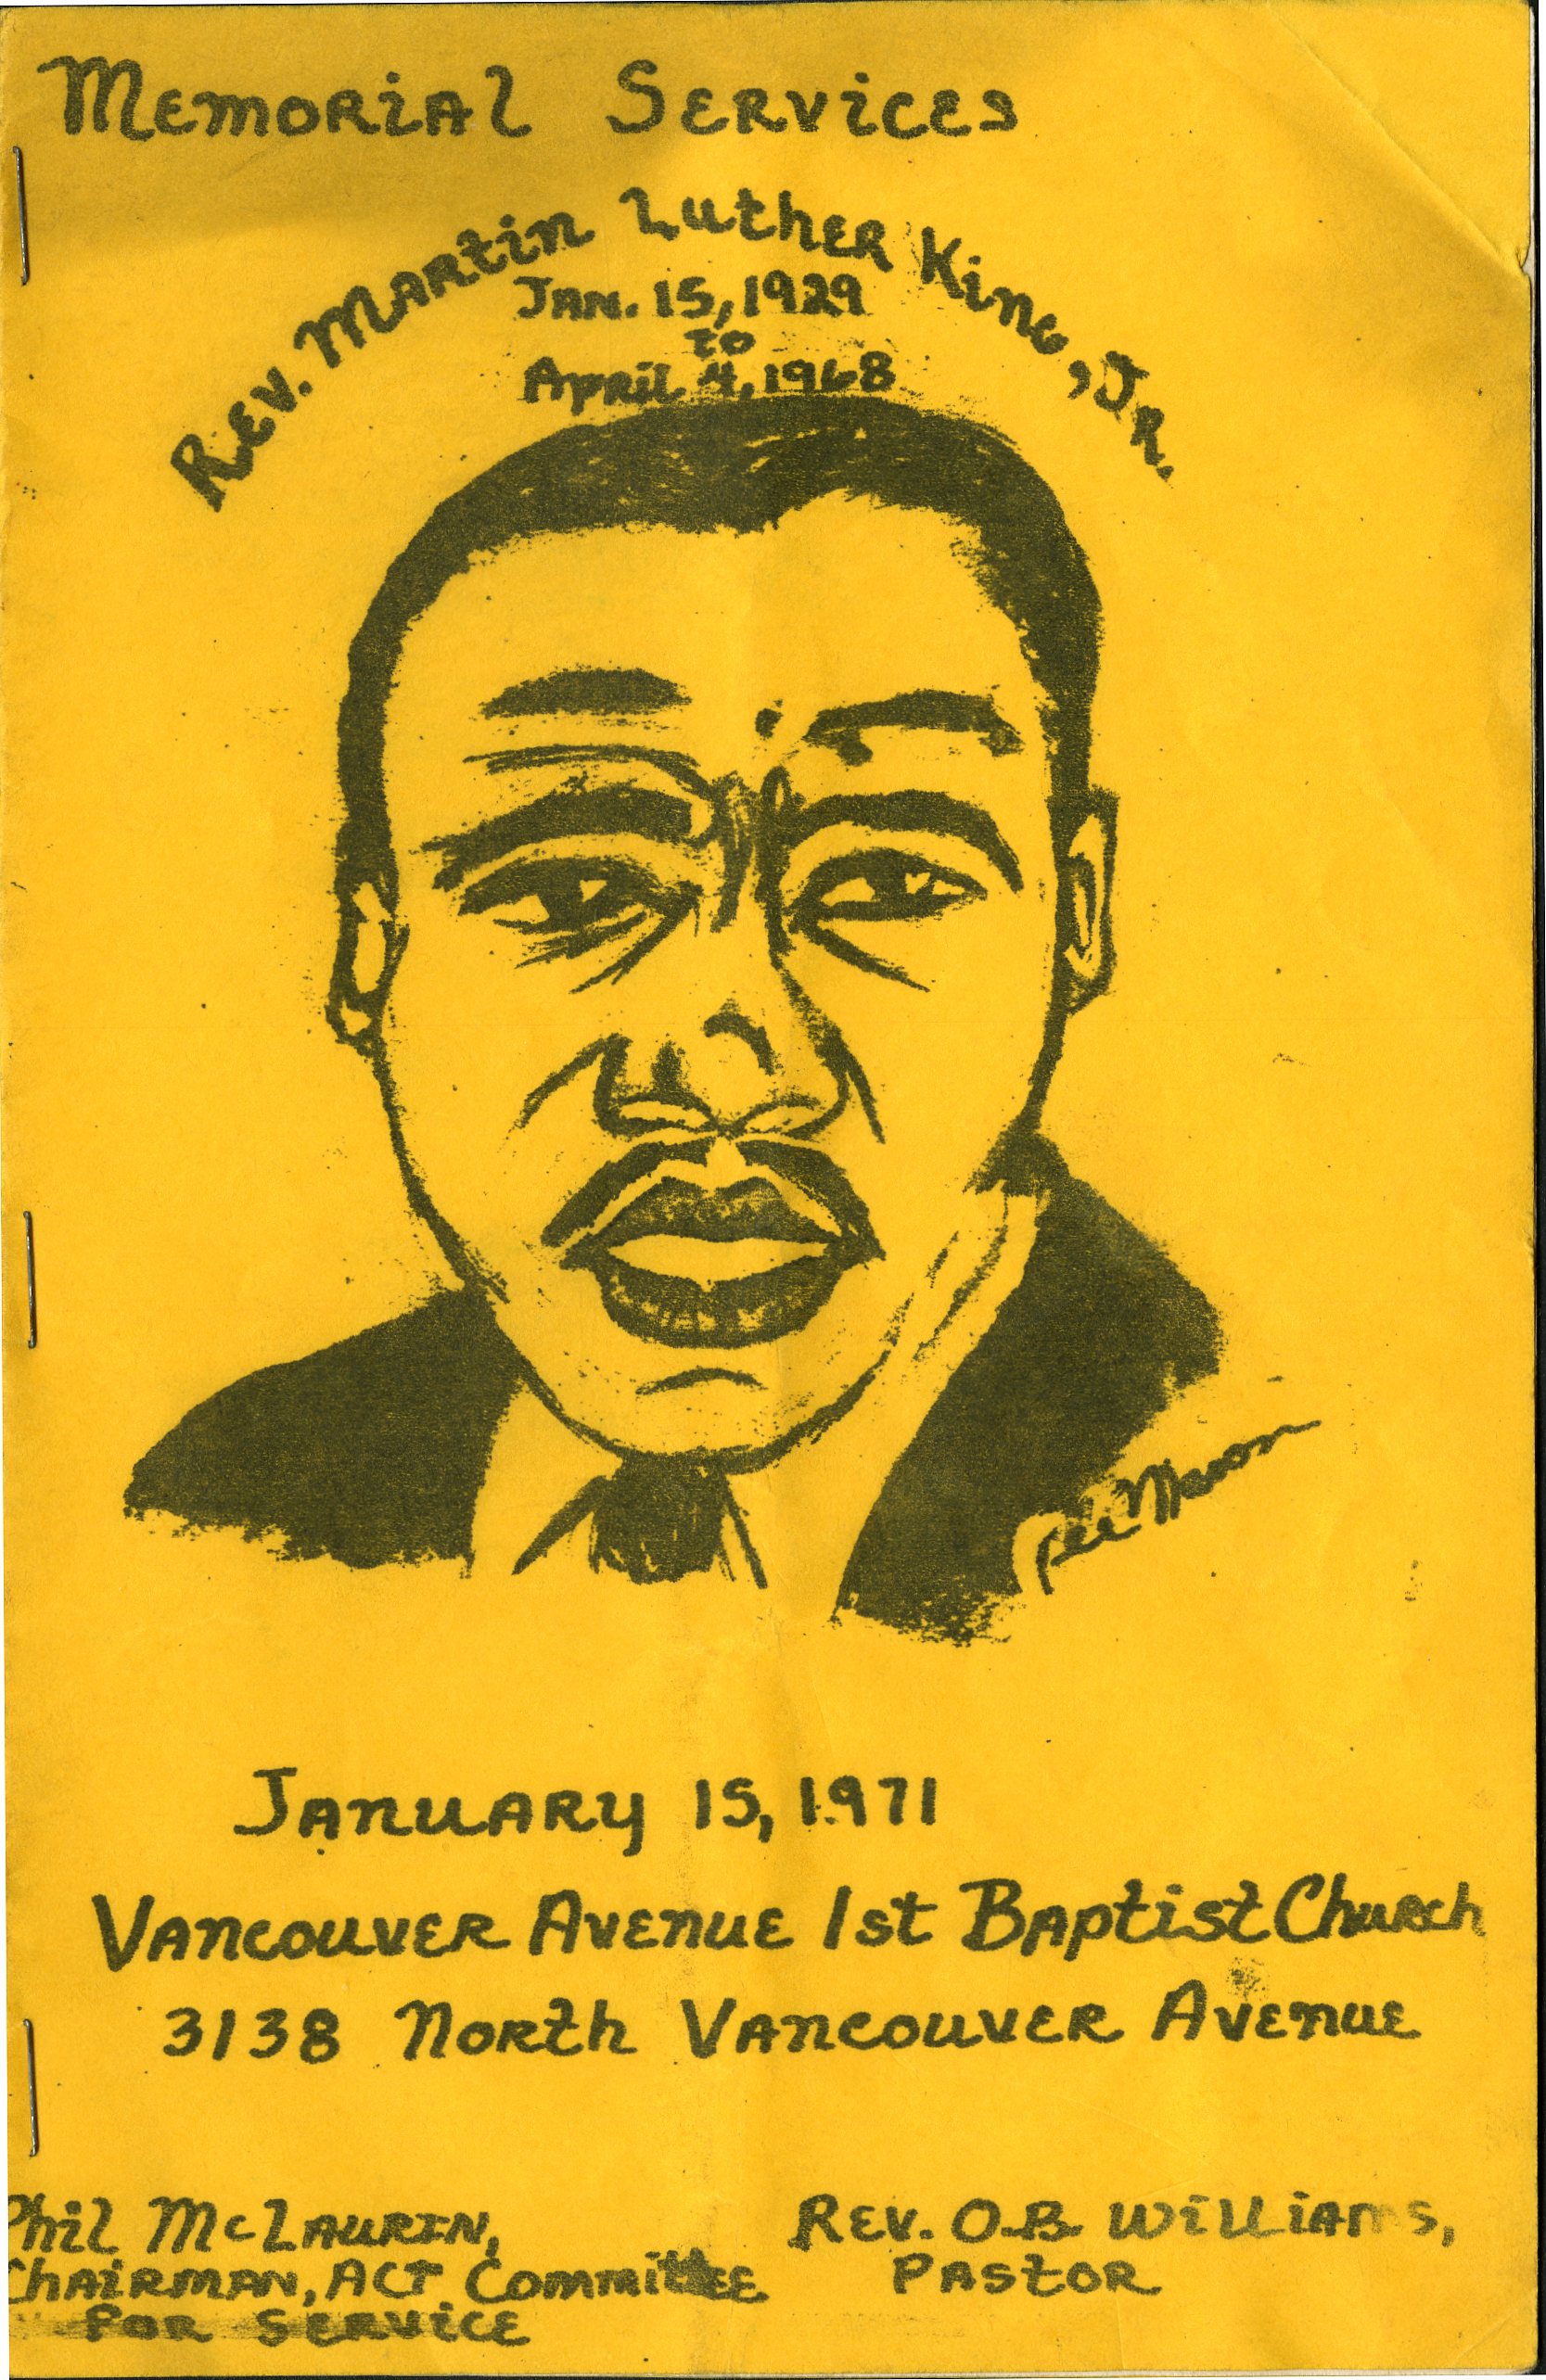 Memorial Services
Rev. Martin Luther King, Jr.
Jan. 15, 1929
to
April 4, 1968
January 15, 1971
Vancouver Avenue 1st Baptist Church
3138 North Vancouver Avenue
Phil McLaurin,
Chairman, ACT Committee
For Service
Rev. O.B. Williams,
Pastor